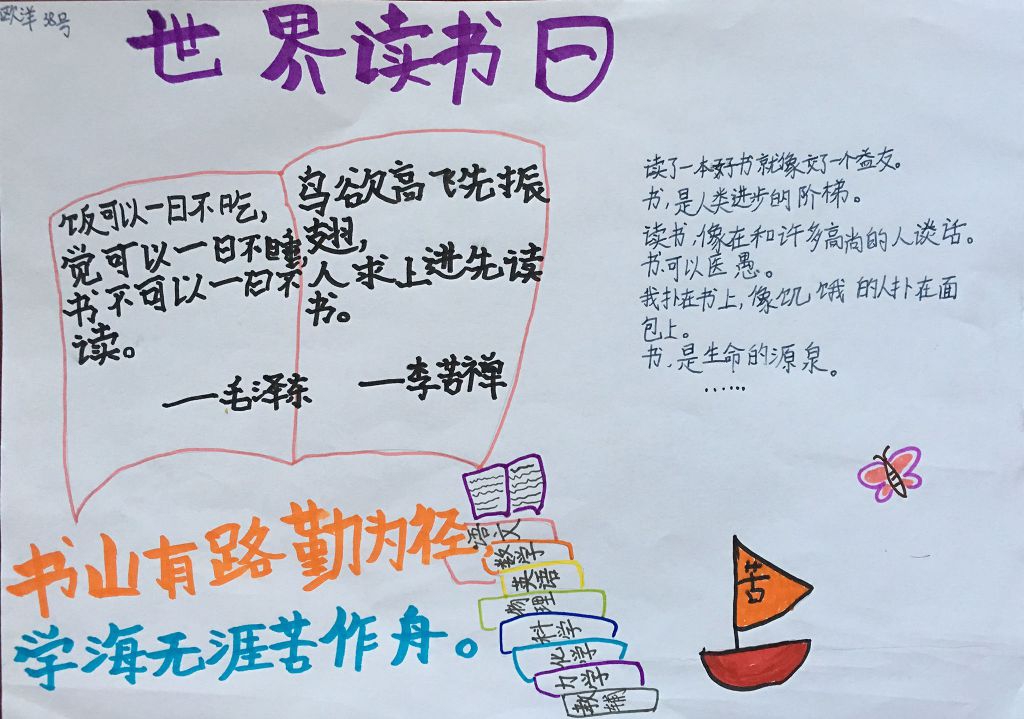 欧洋 38号
世界读书日
饭可以一日不吃，
觉可以一日不睡，
书不可以一日不
读。
——毛泽东
鸟欲高飞先振
翅，
人求上进先读
书。
——李苦禅
读了一本好书就像交了一个益友。
书，是人类进步的阶梯。
读书，像在和许多高尚的人谈话。
书可以医愚。
我扑在书上，像饥饿的人扑在面
包上。
书，是生命的源泉。
……
书山有路勤为径
学海无涯苦作舟。
语文
数学
英语
物理
科学
化学
力学
教辅
苦